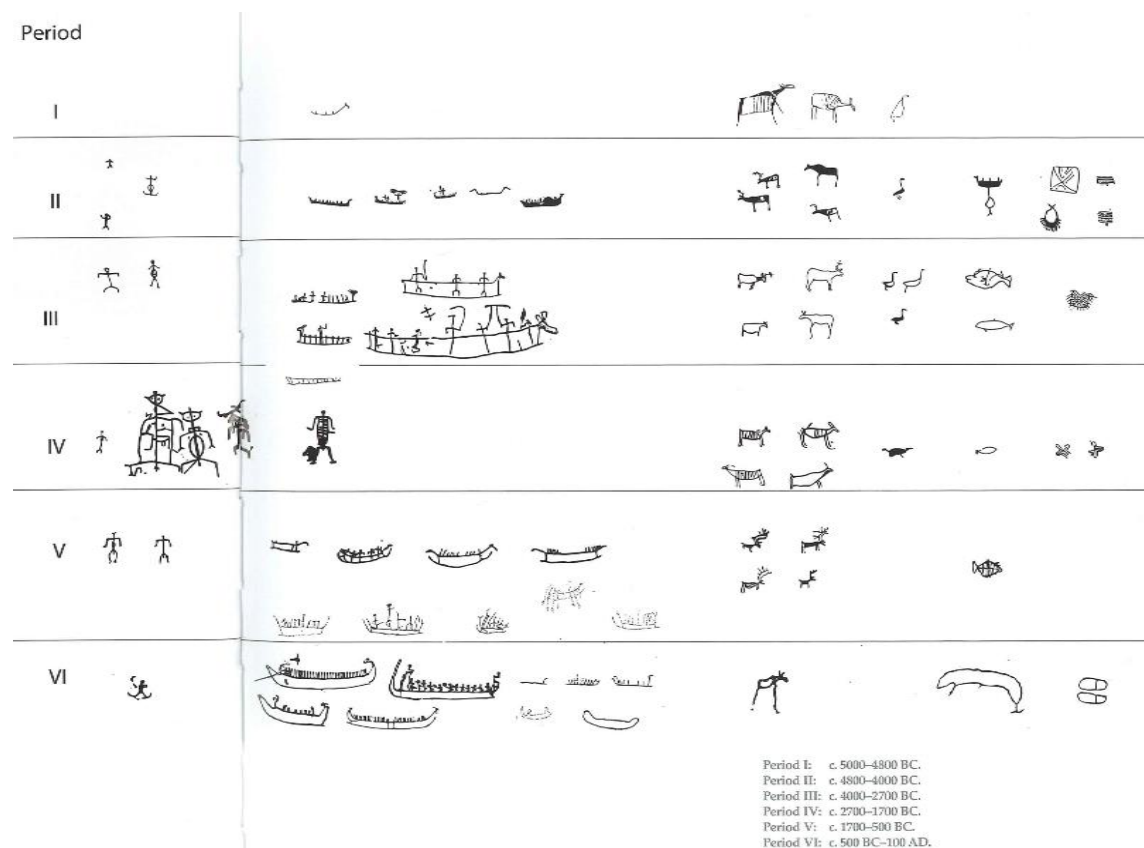 Period
I
II
III
IV
V
VI
Period I: c. 5000–4800 BC.
Period II: c. 4800–4000 BC.
Period III: c. 4000–2700 BC.
Period IV: c. 2700–1700 BC.
Period V: c. 1700–500 BC.
Period VI: c. 500 BC–100 AD.